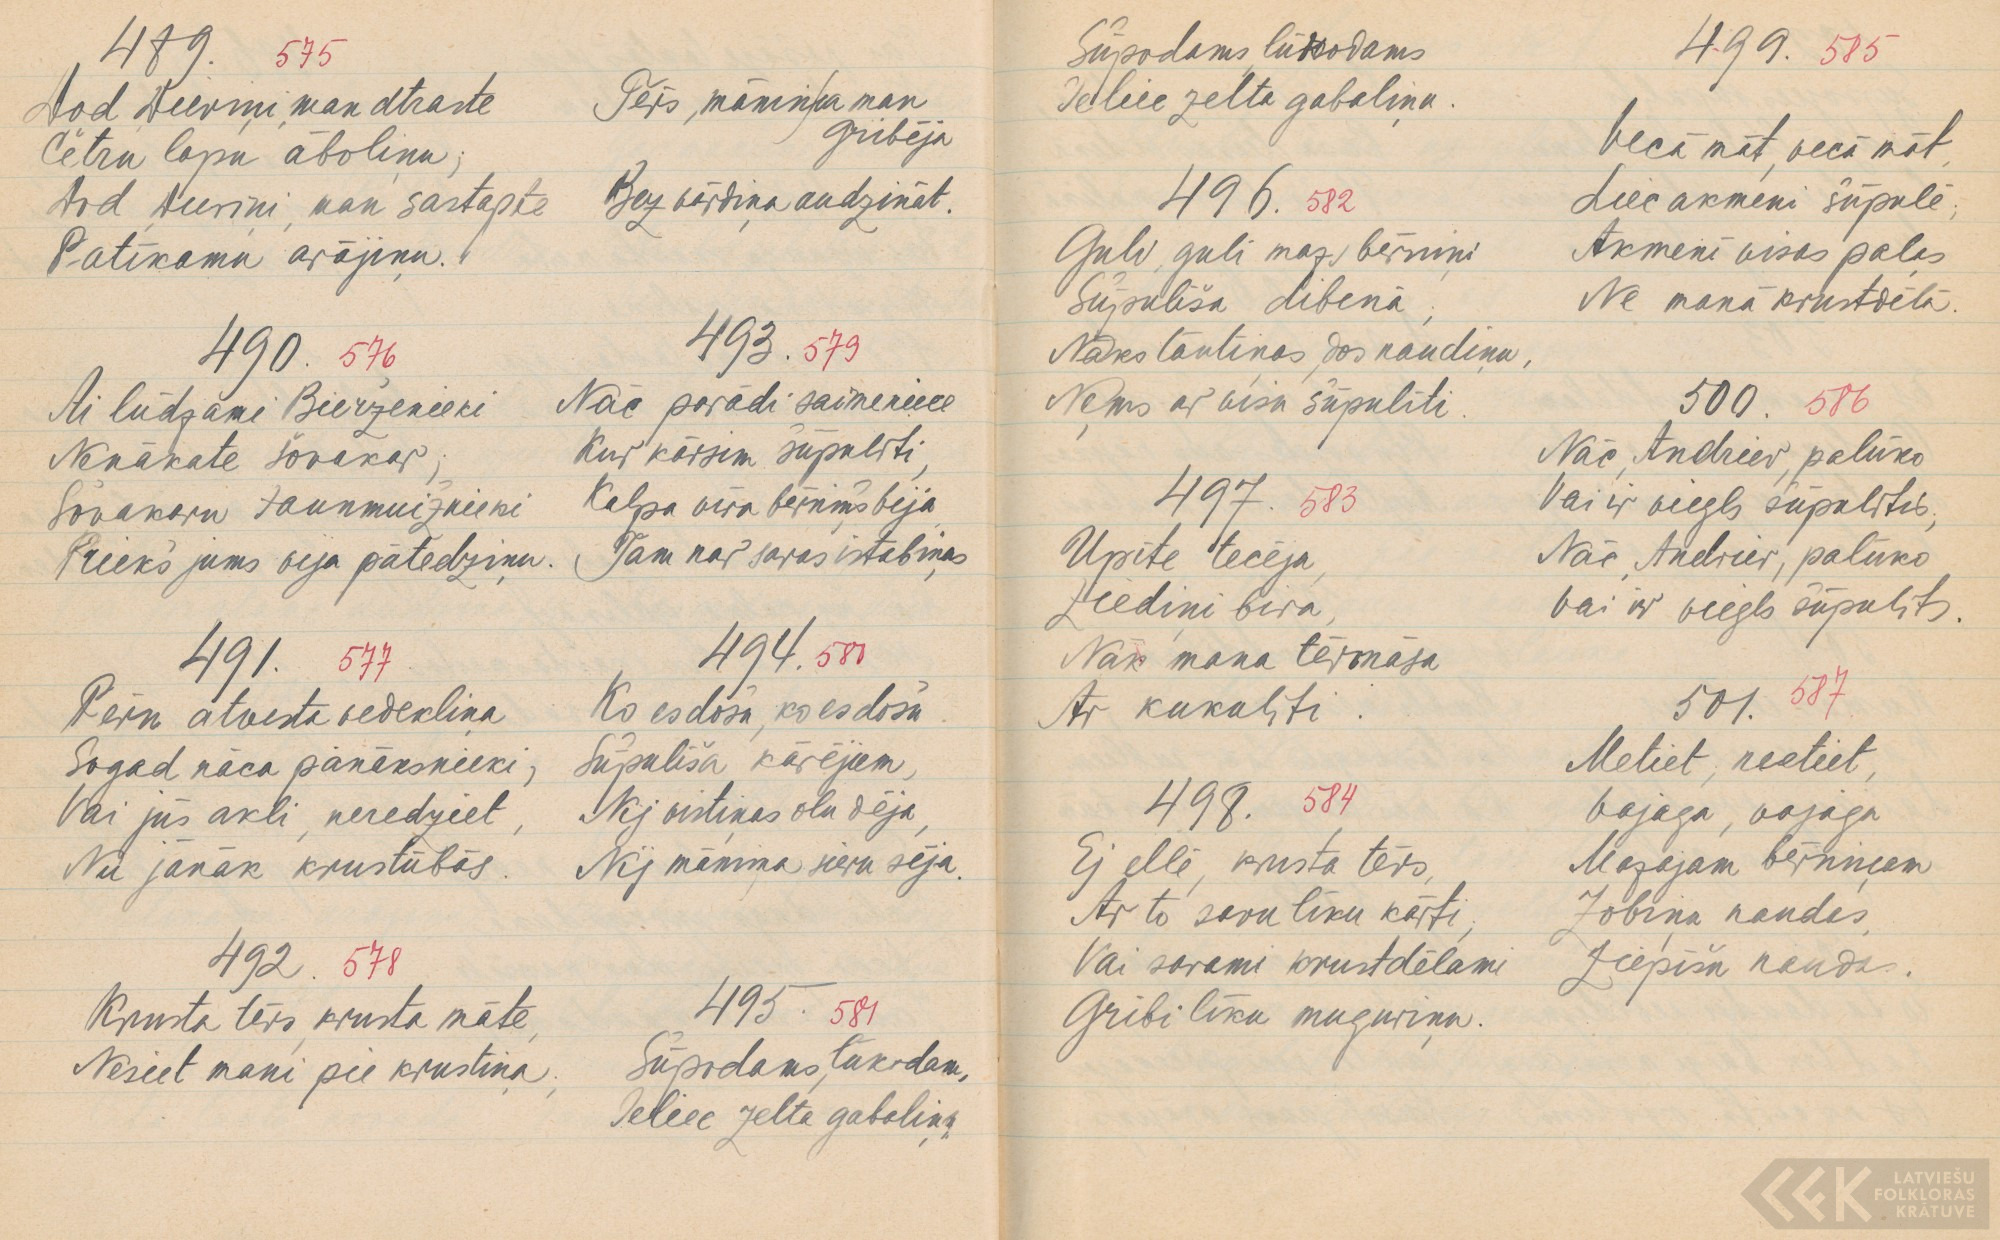 489. 575
Dod Dieviņi, man atraste
Četru lapu āboliņu;
Dod Dieviņi, man sastapte
Patīkamu arājiņu.
490. 576
Ai lūdzami Bierzenieki
Nenākate šovakar;
Šovakaru Jaunmuižnieki
Prieks jums vija pātedziņu.
491. 577
Pērn atvesta vedekliņa
Šogad nāca pānāksnieki;
Vai jūs akli, neredziet,
Nu jānāk krustubās.
492. 578
Krusta tēvs, krusta māte,
Nesiet mani pie krustiņa;
Tēvs, māmiņa man
gribēja
Bez vārdiņa audzināt.
493. 579
Nāc parādi saimeniece
Kur kārsim šūpulīti,
Kalpa vīra bērniņš bija
Tam nav savas istabiņas
494. 580
Ko es došu, ko es došu
Šūpuliša kārējam,
Nij vistiņas olu dēja,
Nij māmiņa sieru sēja.
495. 581
Šūpodams, lūkodams,
Ieliec zelta gabaliņu
Šūpodams, lūkodams
Ieliec zelta gabaliņu.
496. 582
Guli, guli maz' bērniņi
Šūpuliša dibenā;
Nāks tautiņas, dos naudiņu,
Ņems ar visu šūpulīti.
497. 583
Upīte tecēja,
Ziediņi bira,
Nāk mana tēvmāsa
Ar kukulīti.
498. 584
Ej ellē, krusta tēvs,
Ar to savu līku kārti;
Vai savami krustdēlami
Gribi līku muguriņu.
499. 585
Vecā māt, vecā māt,
Liec akmeni šūpulē;
Akmenī visas paļas
Ne manā krustdēlā.
500. 586
Nāc, Andriev, palūko
Vai ir viegls šūpulītis;
Nāc, Andriev, palūko
Vai ir viegls šūpulīts.
501. 587
Metiet, metiet,
Vajaga, vajaga
Mazajam bērniņam
Zobiņu naudas,
Ziepīšu naudas.
LATVIEŠU
FOLKLORAS
KRĀTUVE